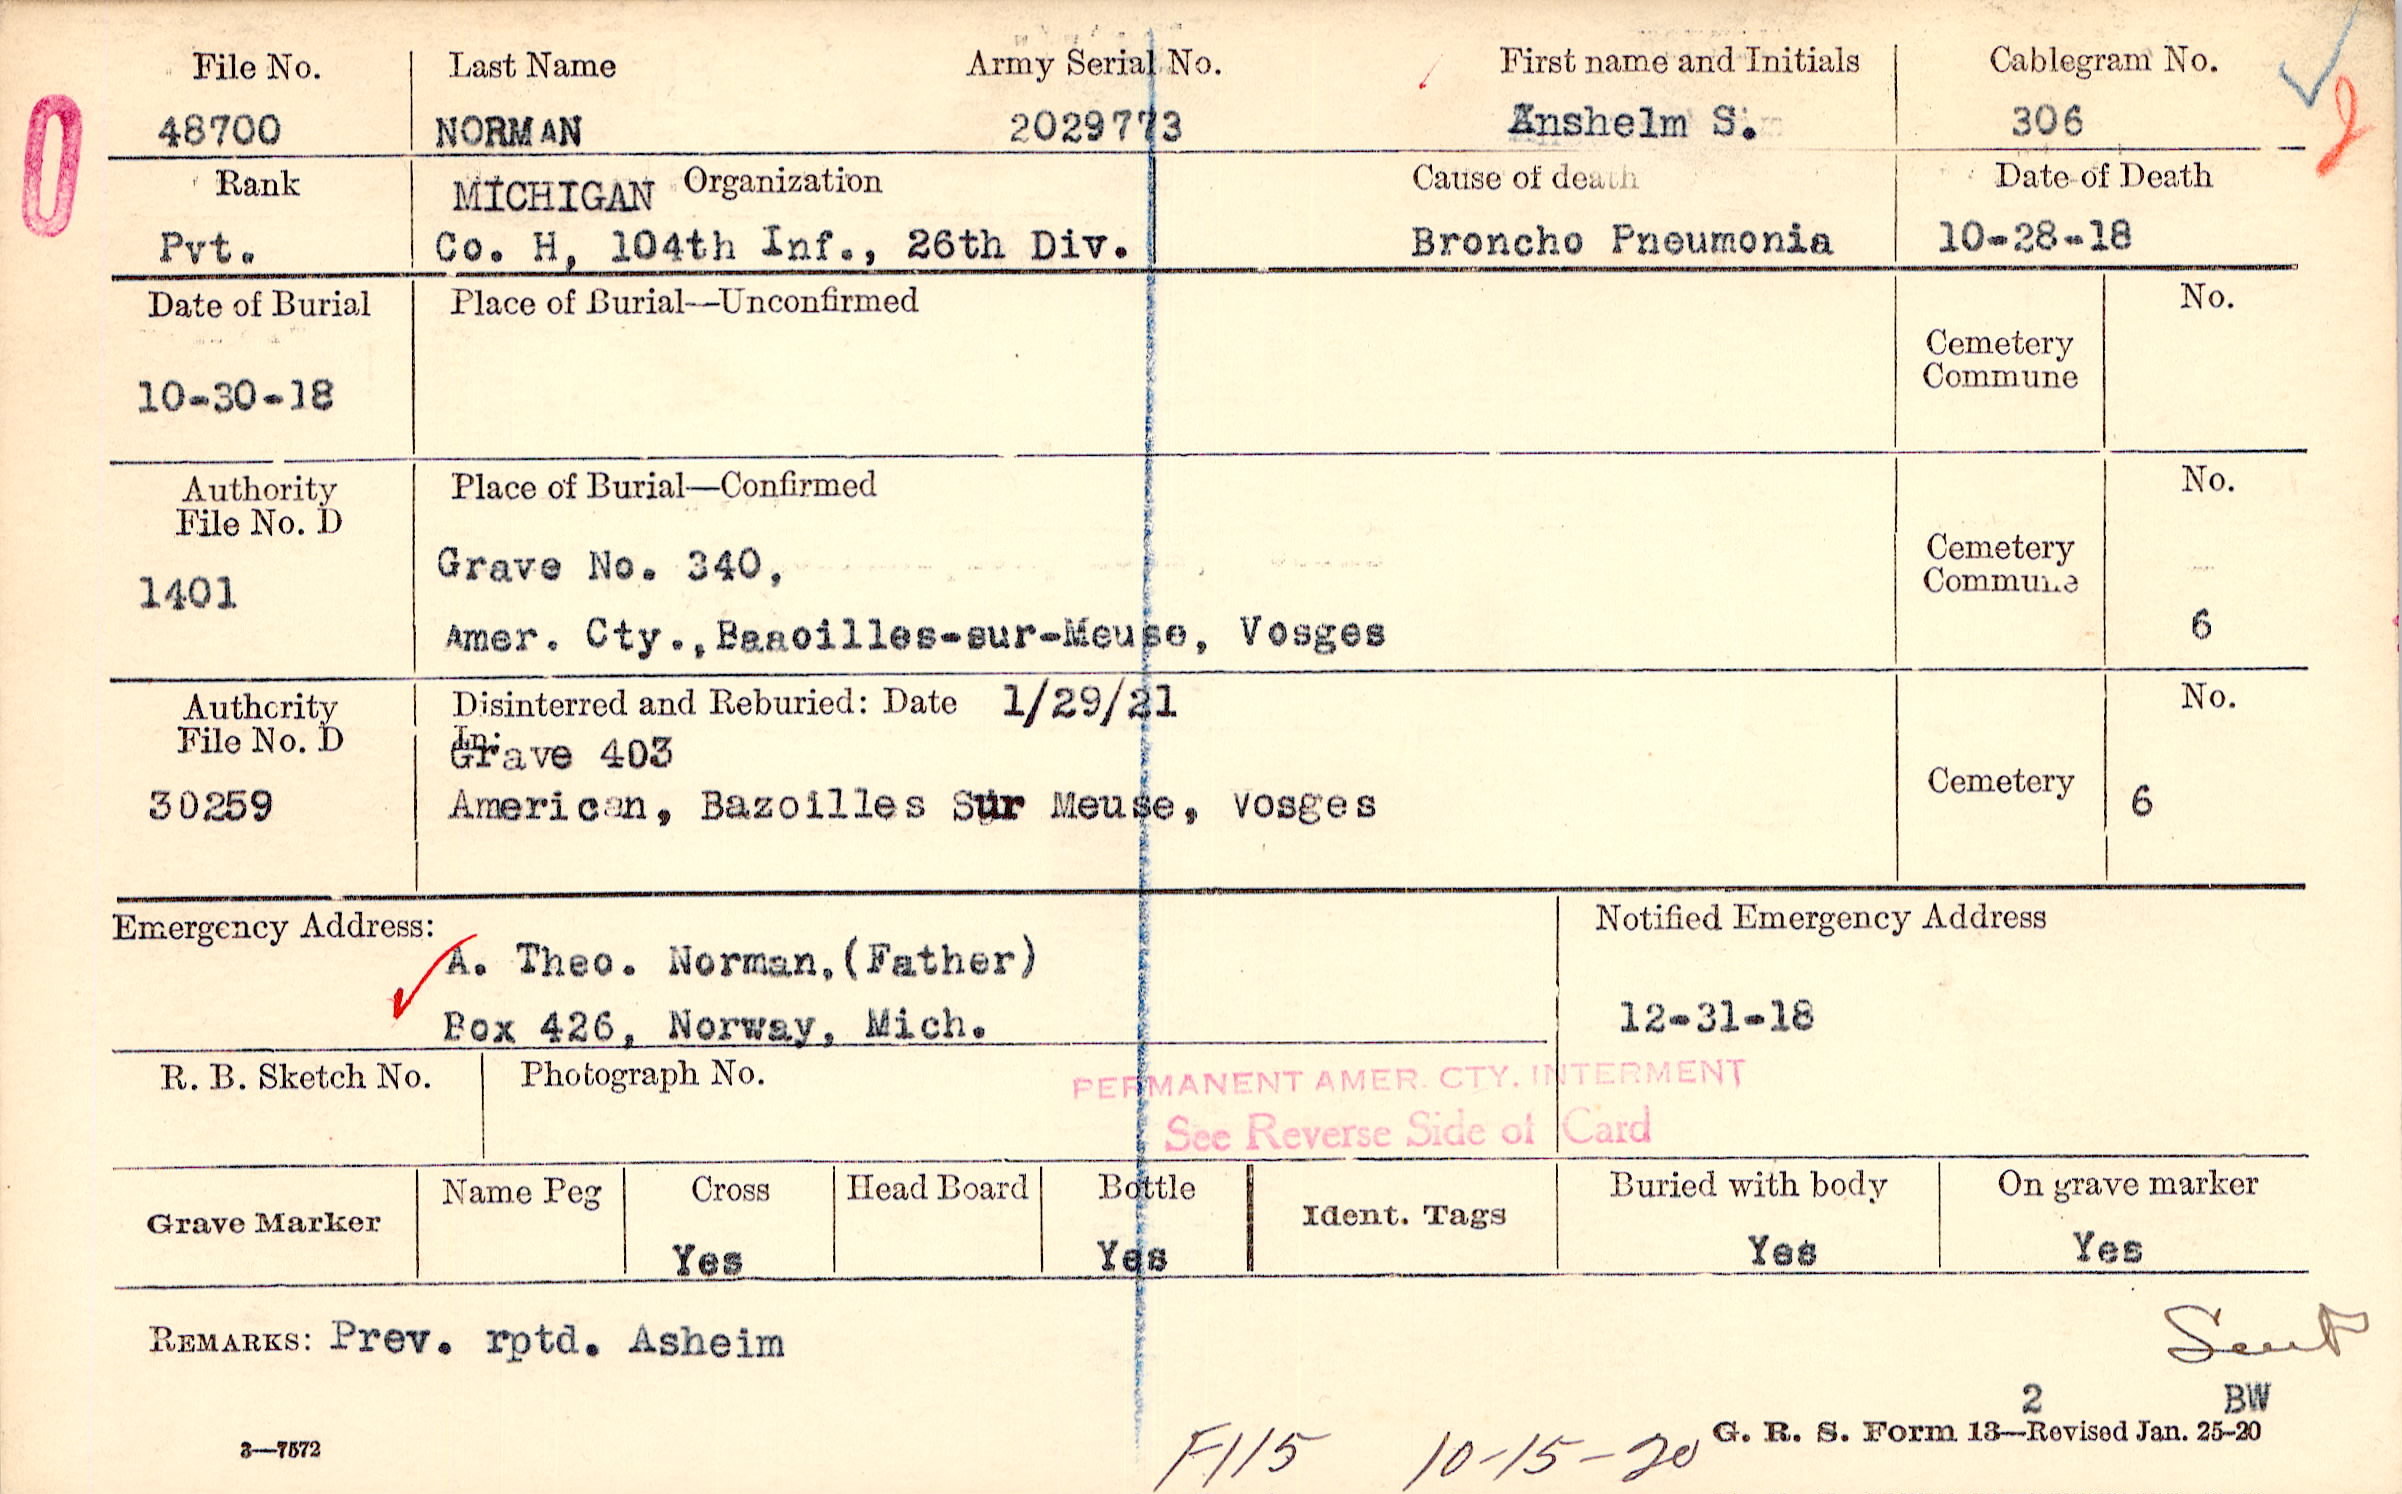 File No. Last Name Army Serial No. First name and Initials Cablegram No.
48700 NORMAN 2029773 Anshelm S. 306
2
0
Rank MICHIGAN Organization Cause of death Date of Death
Pvt. Co. H, 104th Inf., 26th Div. Broncho Pneumonia 10-28-18
Date of Burial Place of Burial—Unconfirmed No.
Cemetery
Commune
10-30-18
Authority Place of Burial—Confirmed No.
File No. D
Grave No. 340, Cemetery
1401 Commune
Amer. Cty., Baaoilles-sur-Meuse, Vosges 6
Authority Disinterred and Reburied: Date 1/29/21 No.
File No. D In:
Grave 403
Cemetery
30259 American, Bazoilles Sur Meuse, Vosges 6
Emergency Address: Notified Emergency Address
A. Theo. Norman, (Father)
Box 426, Norway, Mich. 12-31-18
R. B. Sketch No. Photograph No.
PERMANENT AMER. CTY. INTERMENT
See Reverse Side of Card
Grave Marker Name Peg Cross Head Board Bottle Ident. Tags Buried with body On grave marker
Yes Yes Yes Yes
REMARKS: Prev. rptd. Asheim
Sent
2 BW
3—7572 F115 10-15-20 G. R. S. Form 13—Revised Jan. 25-20